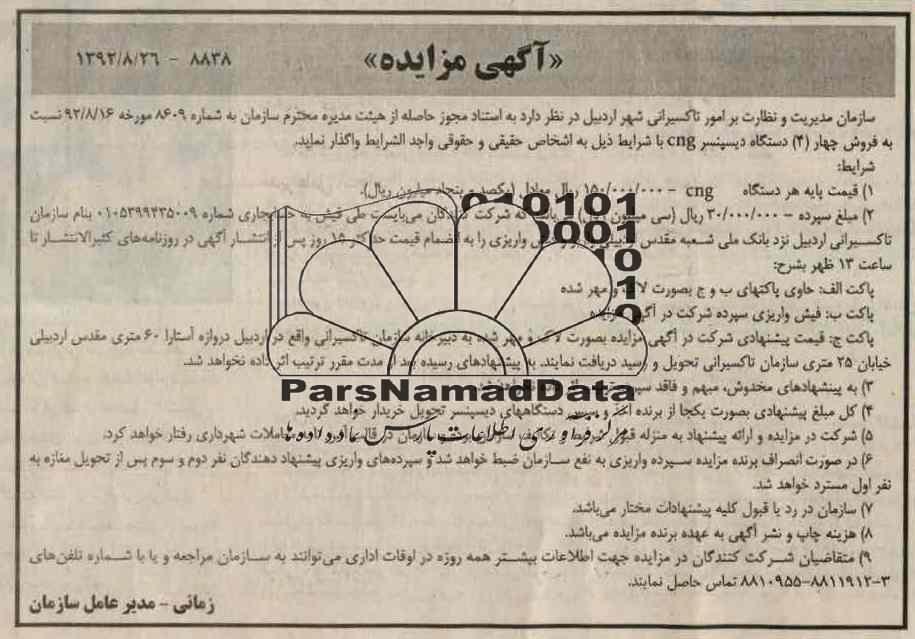 «آگهی مزایده»
۸۸۳۸ - ۱۳۹۲/۸/۲۶
سازمان مدیریت و نظارت بر امور تاکسیرانی شهر اردبیل در نظر دارد به استناد مجوز حاصله از هیئت مدیره محترم سازمان به شماره ۸۶۰۹ مورخه ۹۲/۸/۱۶ نسبت
به فروش چهار (۴) دستگاه دیسپنسر cng با شرایط ذیل به اشخاص حقیقی و حقوقی واجد الشرایط واگذار نماید.
شرایط:
۱) قیمت پایه هر دستگاه cng - ۱۵۰/۰۰۰/۰۰۰ ریال معادل (یکصد و پنجاه میلیون ریال).
۲) مبلغ سپرده - ۳۰/۰۰۰/۰۰۰ ریال (سی میلیون ریال) که شرکت کنندگان می‌بایست طی فیش به حساب جاری شماره ۰۱۰۵۳۹۹۴۳۵۰۰۹ بنام سازمان
تاکسیرانی اردبیل نزد بانک ملی شعبه مقدس اردبیلی واریز و فیش واریزی را به انضمام قیمت حداکثر ۱۵ روز پس از انتشار آگهی در روزنامه‌های کثیرالانتشار تا
ساعت ۱۳ ظهر بشرح:
پاکت الف: حاوی پاکتهای ب و ج بصورت لاک و مهر شده
پاکت ب: فیش واریزی سپرده شرکت در آگهی مزایده
پاکت ج: قیمت پیشنهادی شرکت در آگهی مزایده بصورت لاک و مهر شده به دبیرخانه سازمان تاکسیرانی واقع در اردبیل دروازه آستارا ۶۰ متری مقدس اردبیلی
خیابان ۲۵ متری سازمان تاکسیرانی تحویل و رسید دریافت نمایند. به پیشنهادهای رسیده بعد از مدت مقرر ترتیب اثر داده نخواهد شد.
۳) به پیشنهادهای مخدوش، مبهم و فاقد
ParsNamadData
۴) کل مبلغ پیشنهادی بصورت یکجا از برنده اخذ و سپس دستگاههای دیسپنسر تحویل خریدار خواهد گردید.
۵) شرکت در مزایده و ارائه پیشنهاد به منزله قبول شروط و تکالیف سازمان در قالب معاملات شهرداری رفتار خواهد کرد.
۶) در صورت انصراف برنده مزایده سپرده واریزی به نفع سازمان ضبط خواهد شد و سپرده‌های واریزی پیشنهاد دهندگان نفر دوم و سوم پس از تحویل مغازه به
نفر اول مسترد خواهد شد.
۷) سازمان در رد یا قبول کلیه پیشنهادات مختار می‌باشد.
۸) هزینه چاپ و نشر آگهی به عهده برنده مزایده می‌باشد.
۹) متقاضیان شرکت کنندگان در مزایده جهت اطلاعات بیشتر همه روزه در اوقات اداری می‌توانند به سازمان مراجعه و یا با شماره تلفن‌های
۸۸۱۰۹۵۵-۸۸۱۱۹۱۲-۳ تماس حاصل نمایند.
زمانی - مدیر عامل سازمان